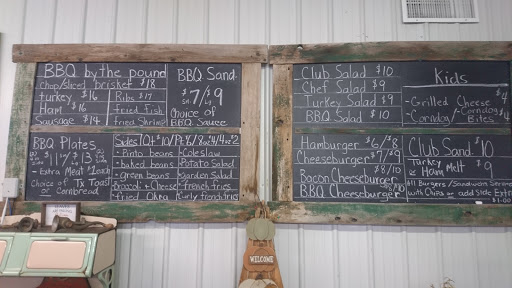 BBQ by the pound
chop/sliced brisket $18
turkey $16
Ham $16
Sausage $14
Ribs $17
fried Fish
fried Shrimp
BBQ Sand.
$7/$9
Choice of
BBQ Sauce
BBQ Plates
$11 $13
- Extra Meat $2 each
Choice of Tx Toast
or Cornbread
Sides
- Pinto beans
- baked beans
- green beans
- broccoli + Cheese
- fried Okra
- Coleslaw
- Potato Salad
- garden Salad
- french fries
- Curly french fries
Club Salad $10
Chef Salad $9
Turkey Salad $9
BBQ Salad $10
Kids
- Grilled Cheese
- Corndog / - Corndog Bites
Hamburger $6/8
Cheeseburger $7/$9
Bacon Cheeseburger $8/10
BBQ Cheeseburger $8/10
Club Sand. $10
Turkey
or Ham Melt $9
All Burgers / Sandwich Served
with Chips or add Side Extra
$1.00
WELCOME